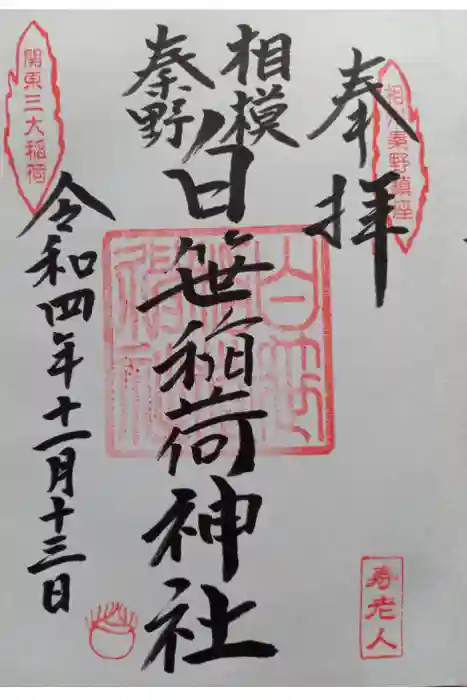 奉拝
相州秦野鎮座
相模
秦野
白笹稲荷神社
白笹稲荷神社
関東三大稲荷
令和四年十一月十三日
寿老人